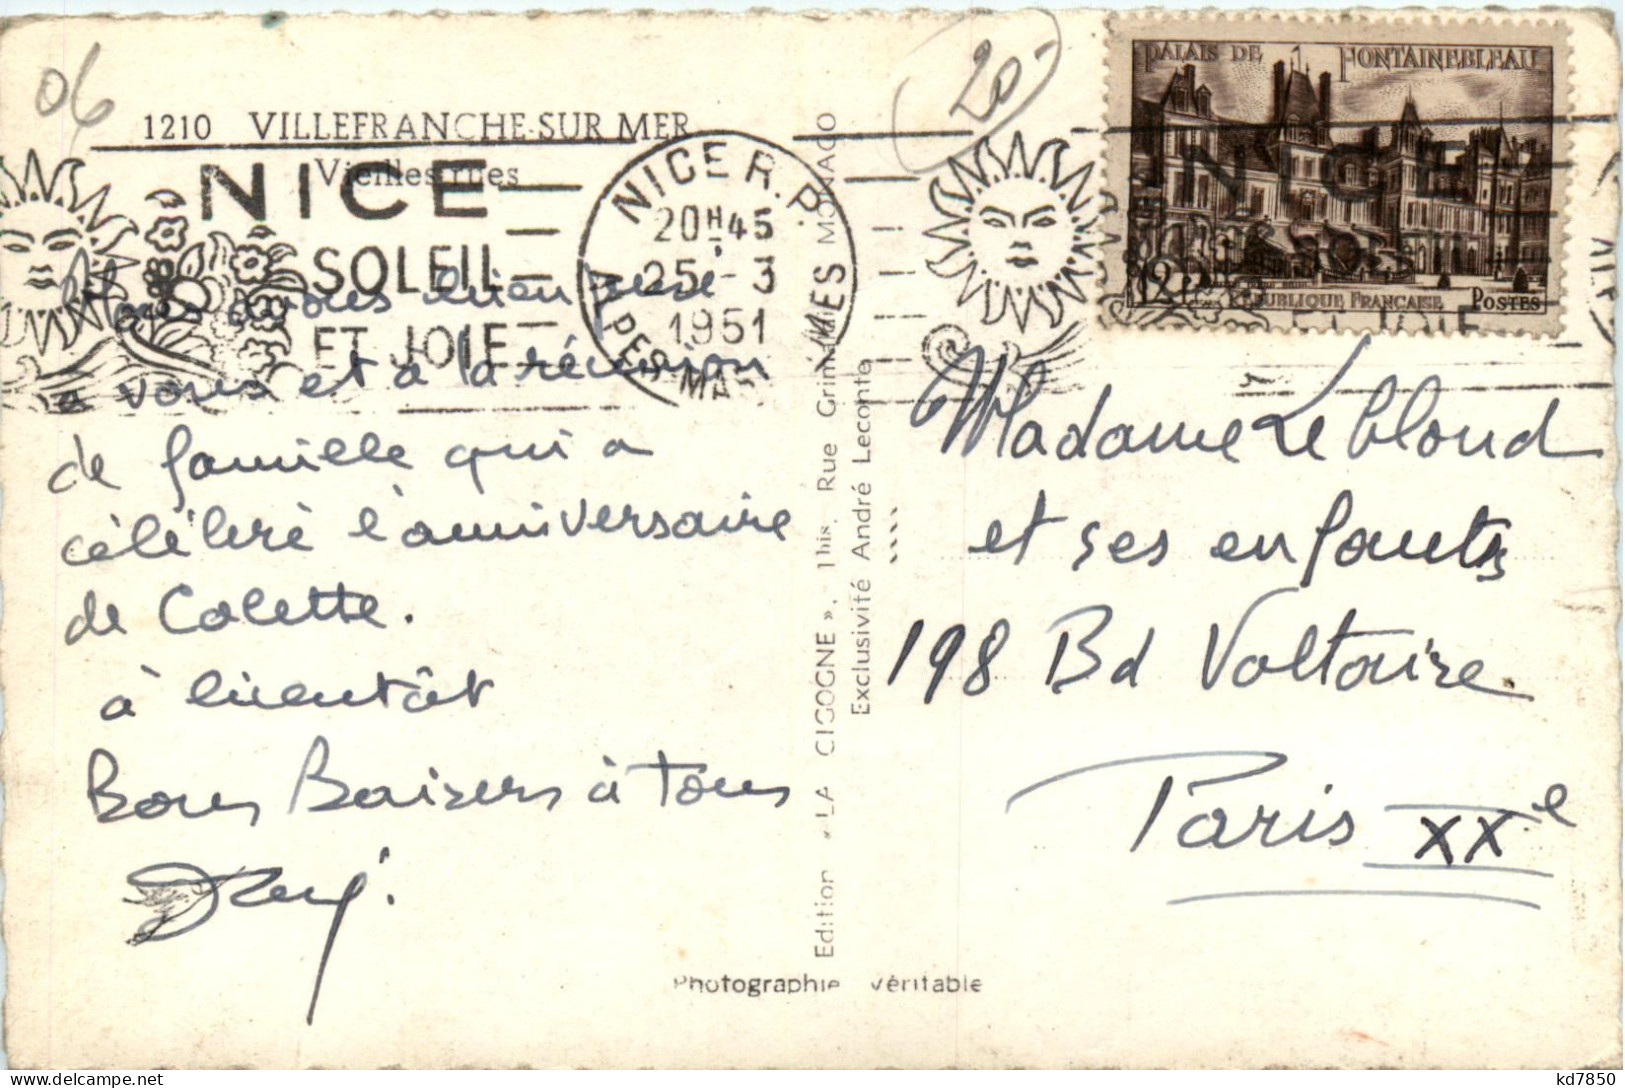 06
20-
1210 VILLEFRANCHE-SUR MER
Vieilles rues
NICE
SOLEIL
ET JOIE
NICE R.P.
20H45
25-3
1951
ALPES-MARMES
PALAIS DE FONTAINEBLEAU
12F
RÉPUBLIQUE FRANÇAISE POSTES
NICE
ET JOIE
Nous avons bien pensé
a vous et à la réunion
de famille qui a
célébré l'anniversaire
de Colette.
à bientôt
Bons Baisers à Tous
Edition « LA CIGOGNE », 1 bis, Rue Grimaldi MONACO
Exclusivité André Leconte
Madame Leblond
et ses enfants
198 Bd Voltaire.
Paris XXe
Photographie véritable
kd7850